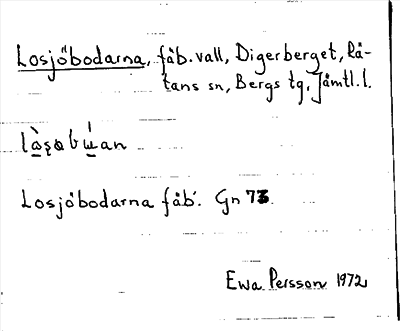 Losjöbodarna, fäb. vall, Digerberget, Rä-
tans sn, Bergs tg, Jämtl. l.
Losjöbodarna fäb. Gn 73
Ewa Persson 1972